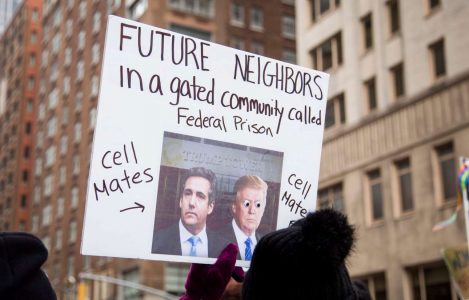 FUTURE NEIGHBORS
in a gated community called
Federal Prison
TRUMP TOWER
CELL
MATES
CELL
MATES